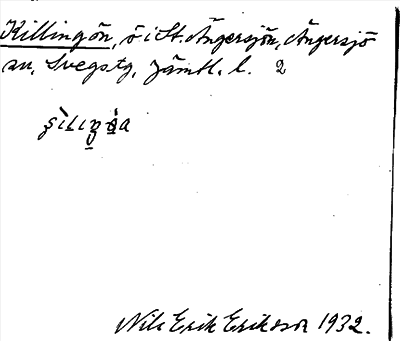 Killingön, ö i St. Ängersjön, Ängersjö
sn, Svegs tg, Jämtl. l. 2
Nils Erik Erikson 1932.